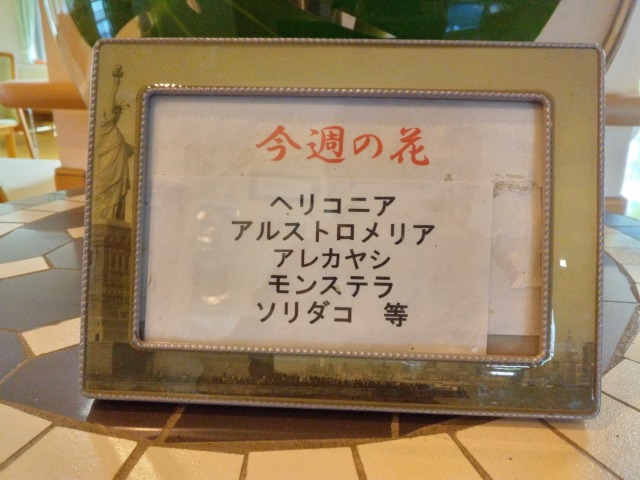 今週の花
ヘリコニア
アルストロメリア
アレカヤシ
モンステラ
ソリダコ　等